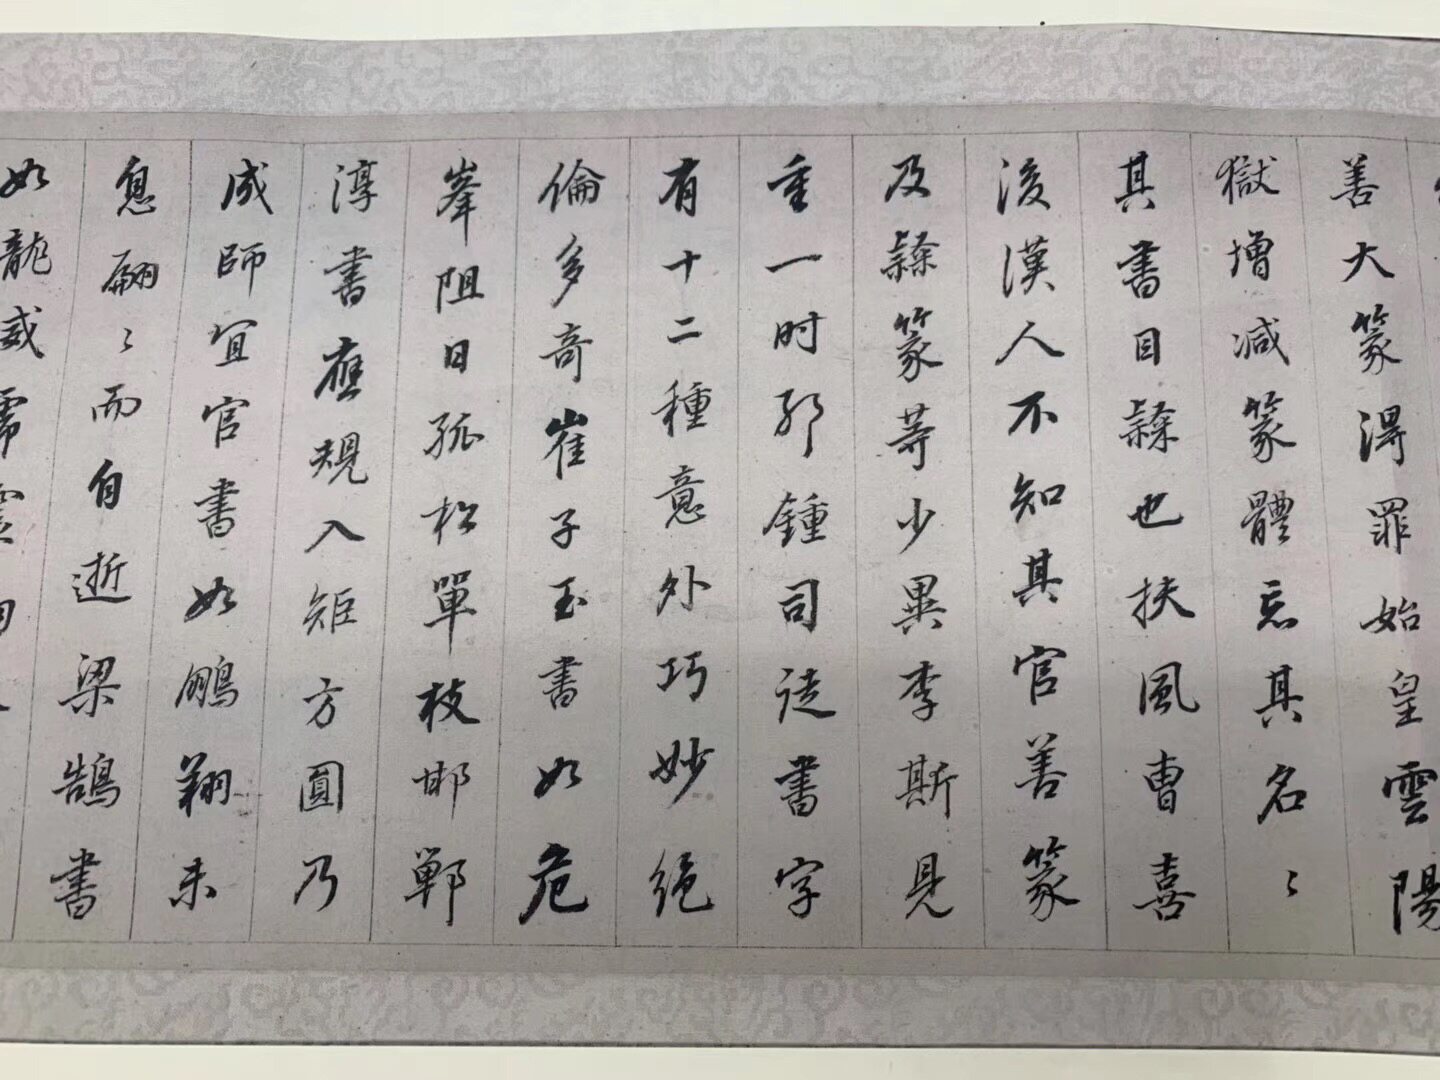 善大篆得罪始皇雲陽
獄增減篆體去其名〻
其書曰隸也扶風曹喜
後漢人不知其官善篆
及隸篆等少異李斯見
重一时邪鍾司徒書字
有十二種意外巧妙绝
倫多奇崔子玉書如危
峯阻日孤松單枝邯鄲
淳書應規入矩方圓乃
成師宜官書如鵬翔未
息翩〻而自逝梁鵠書
如龍威